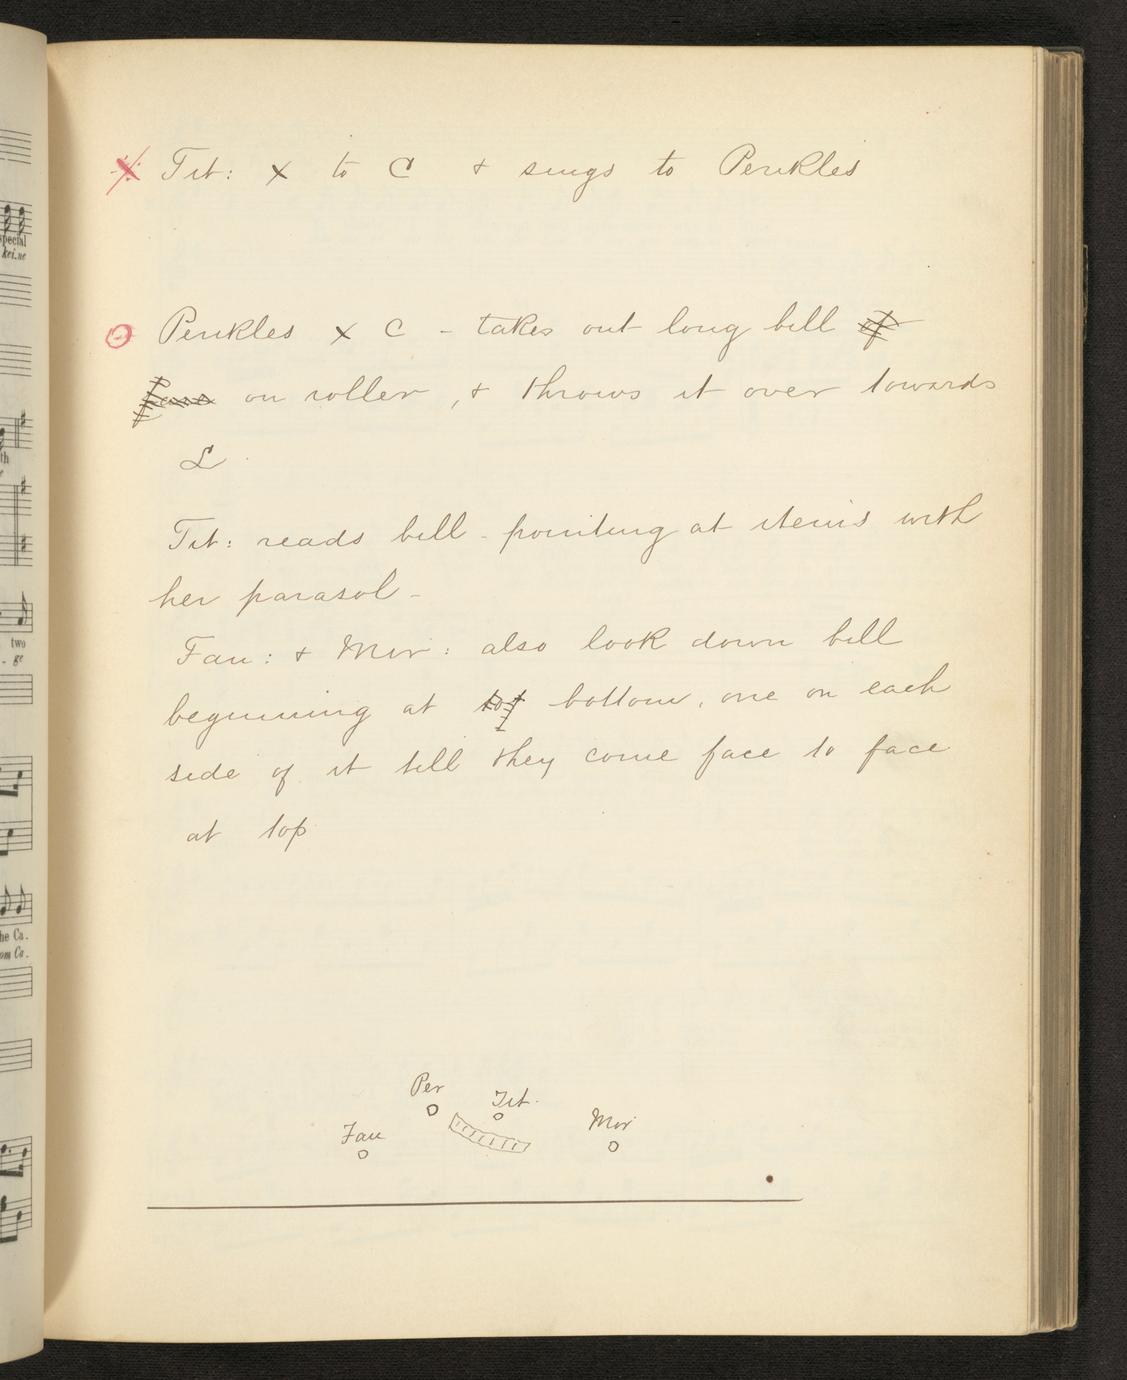 special
kei.ne
th
two
- ge
he Ca.
om Ca.
Tit: x to C + sings to Perikles
Perikles x C - takes out long bill of
on roller, + throws it over towards
L
Tit: reads bill - pointing at items with
her parasol -
Fan: + Mir: also look down bill
beginning at top bottom, one on each
side of it till they come face to face
at top
Per
Tit.
Mir
Fan